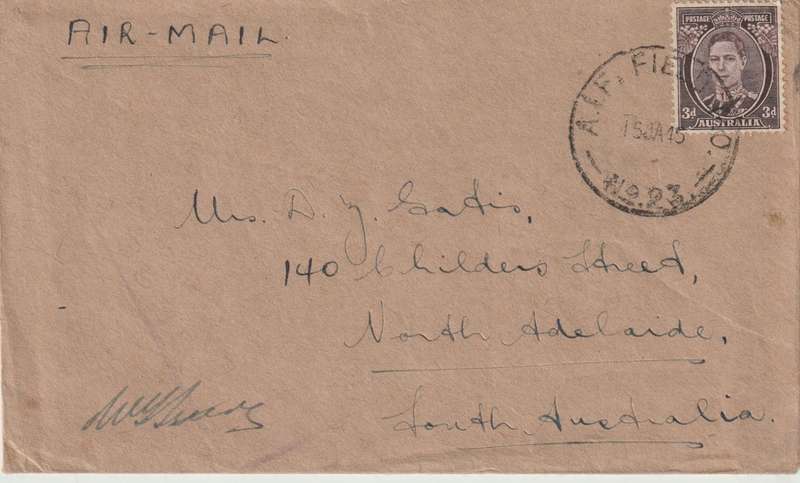 AIR-MAIL.
POSTAGE POSTAGE
3d 3d
AUSTRALIA
A.I.F. FIELD P.O.
15JA45
No. 23
Mrs. D. Y. Eatis,
140 Childers Street,
North Adelaide,
South Australia.